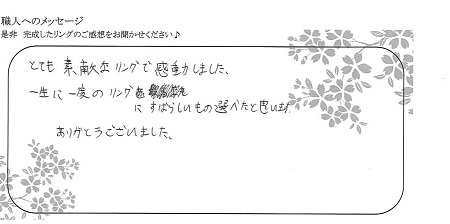 職人へのメッセージ
是非 完成したリングのご感想をお聞かせください♪
とても 素敵なリングで感動しました、
一生に一度の リング
に すばらしいもの選べたと思います
ありがとうございました。